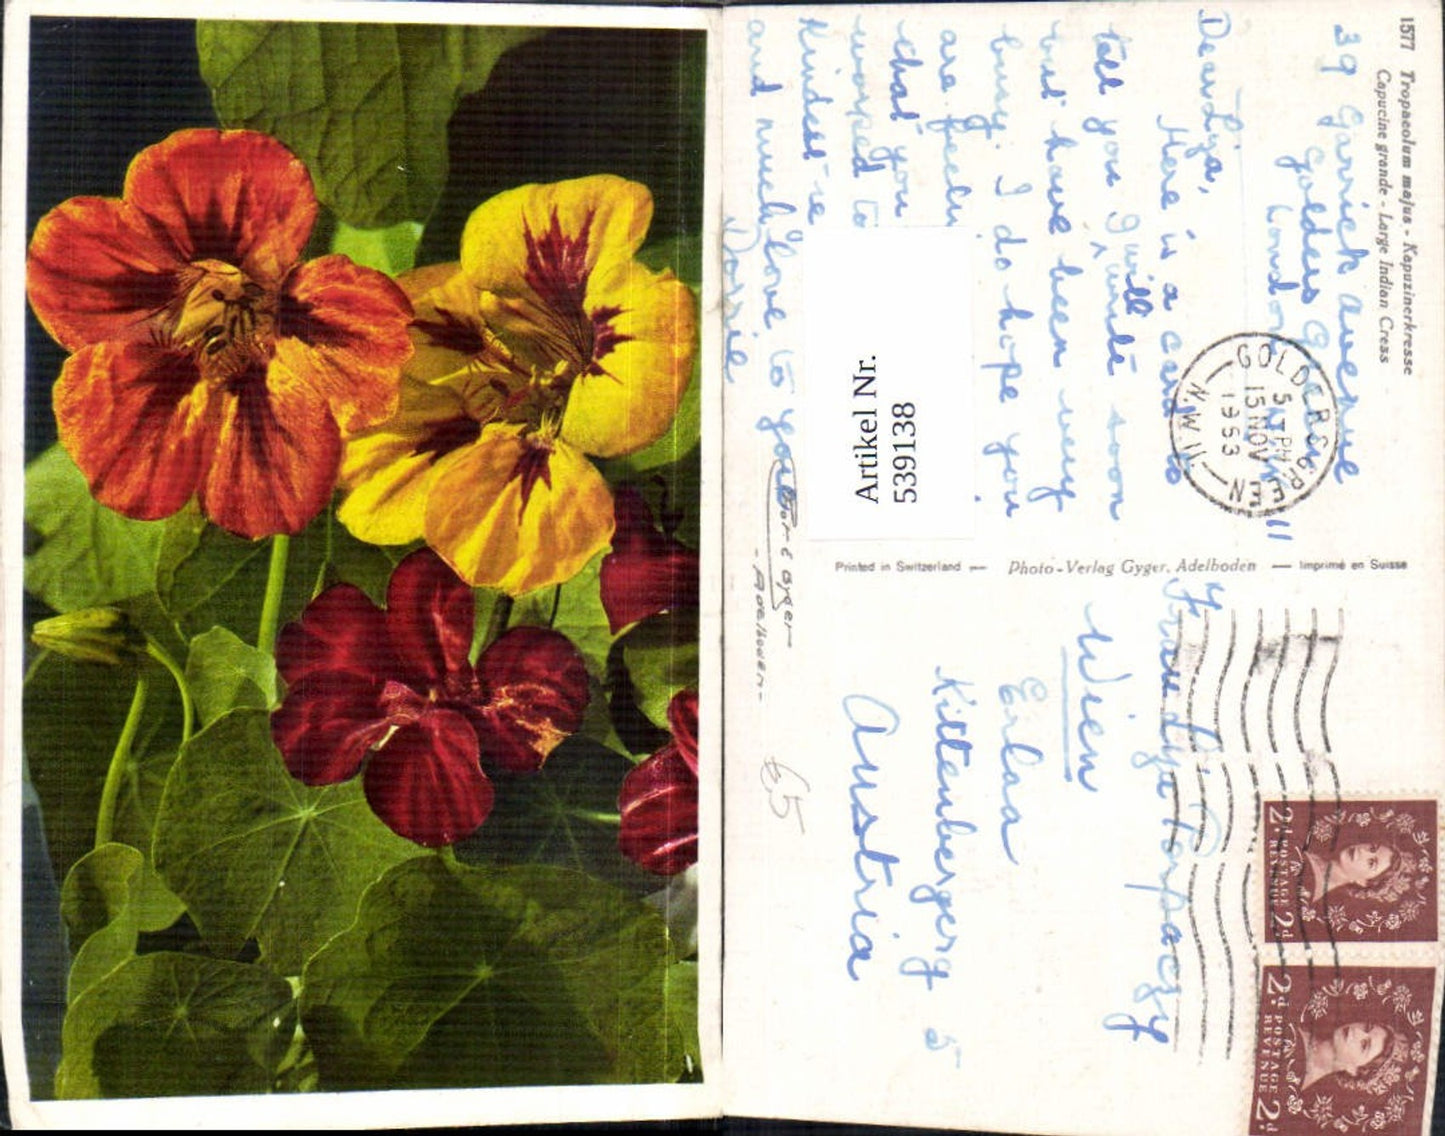 1577 Tropaeolum majus - Kapuzinerkresse
Capucine grande - Large Indian Cress
39 Garrick Avenue
Golders Green
London
N.W. 11
Dear Lya,
Here is a card to
tell you I will write soon
but have been very
busy. I do hope you
are
that you
to
Kindest
and much love to you
Dorrie
GOLDERS GREEN
5 PM
15 NOV
1953
N.W.11
E
Artikel Nr.
539138
Printed in Switzerland — Photo-Verlag Gyger, Adelboden — Imprimé en Suisse
Frau Lya
Wien
Erlaa
Kittenbergerg 5
Austria
Gyger
- Adelboden -
65
2d POSTAGE REVENUE 2d
2d POSTAGE REVENUE 2d